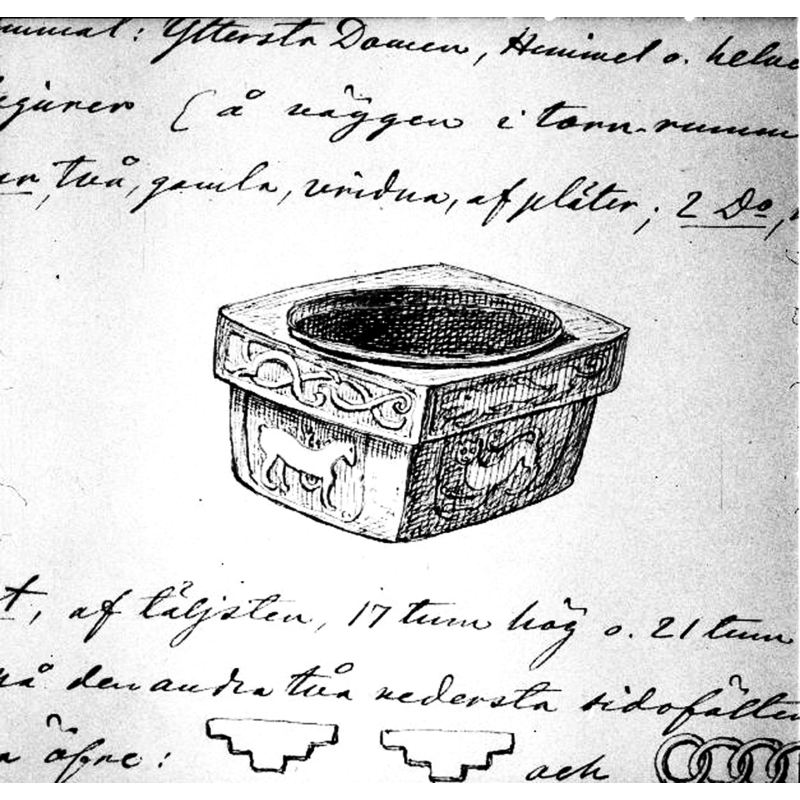 : Yttersta Domen, Himmel o. helve
figurer (å väggen i torn-rumm
två, gamla, vridna, af pläter; 2 Do,
t, af täljsten, 17 tum hög o. 21 tum
på den andra två nedersta sidofälten
öfre: och